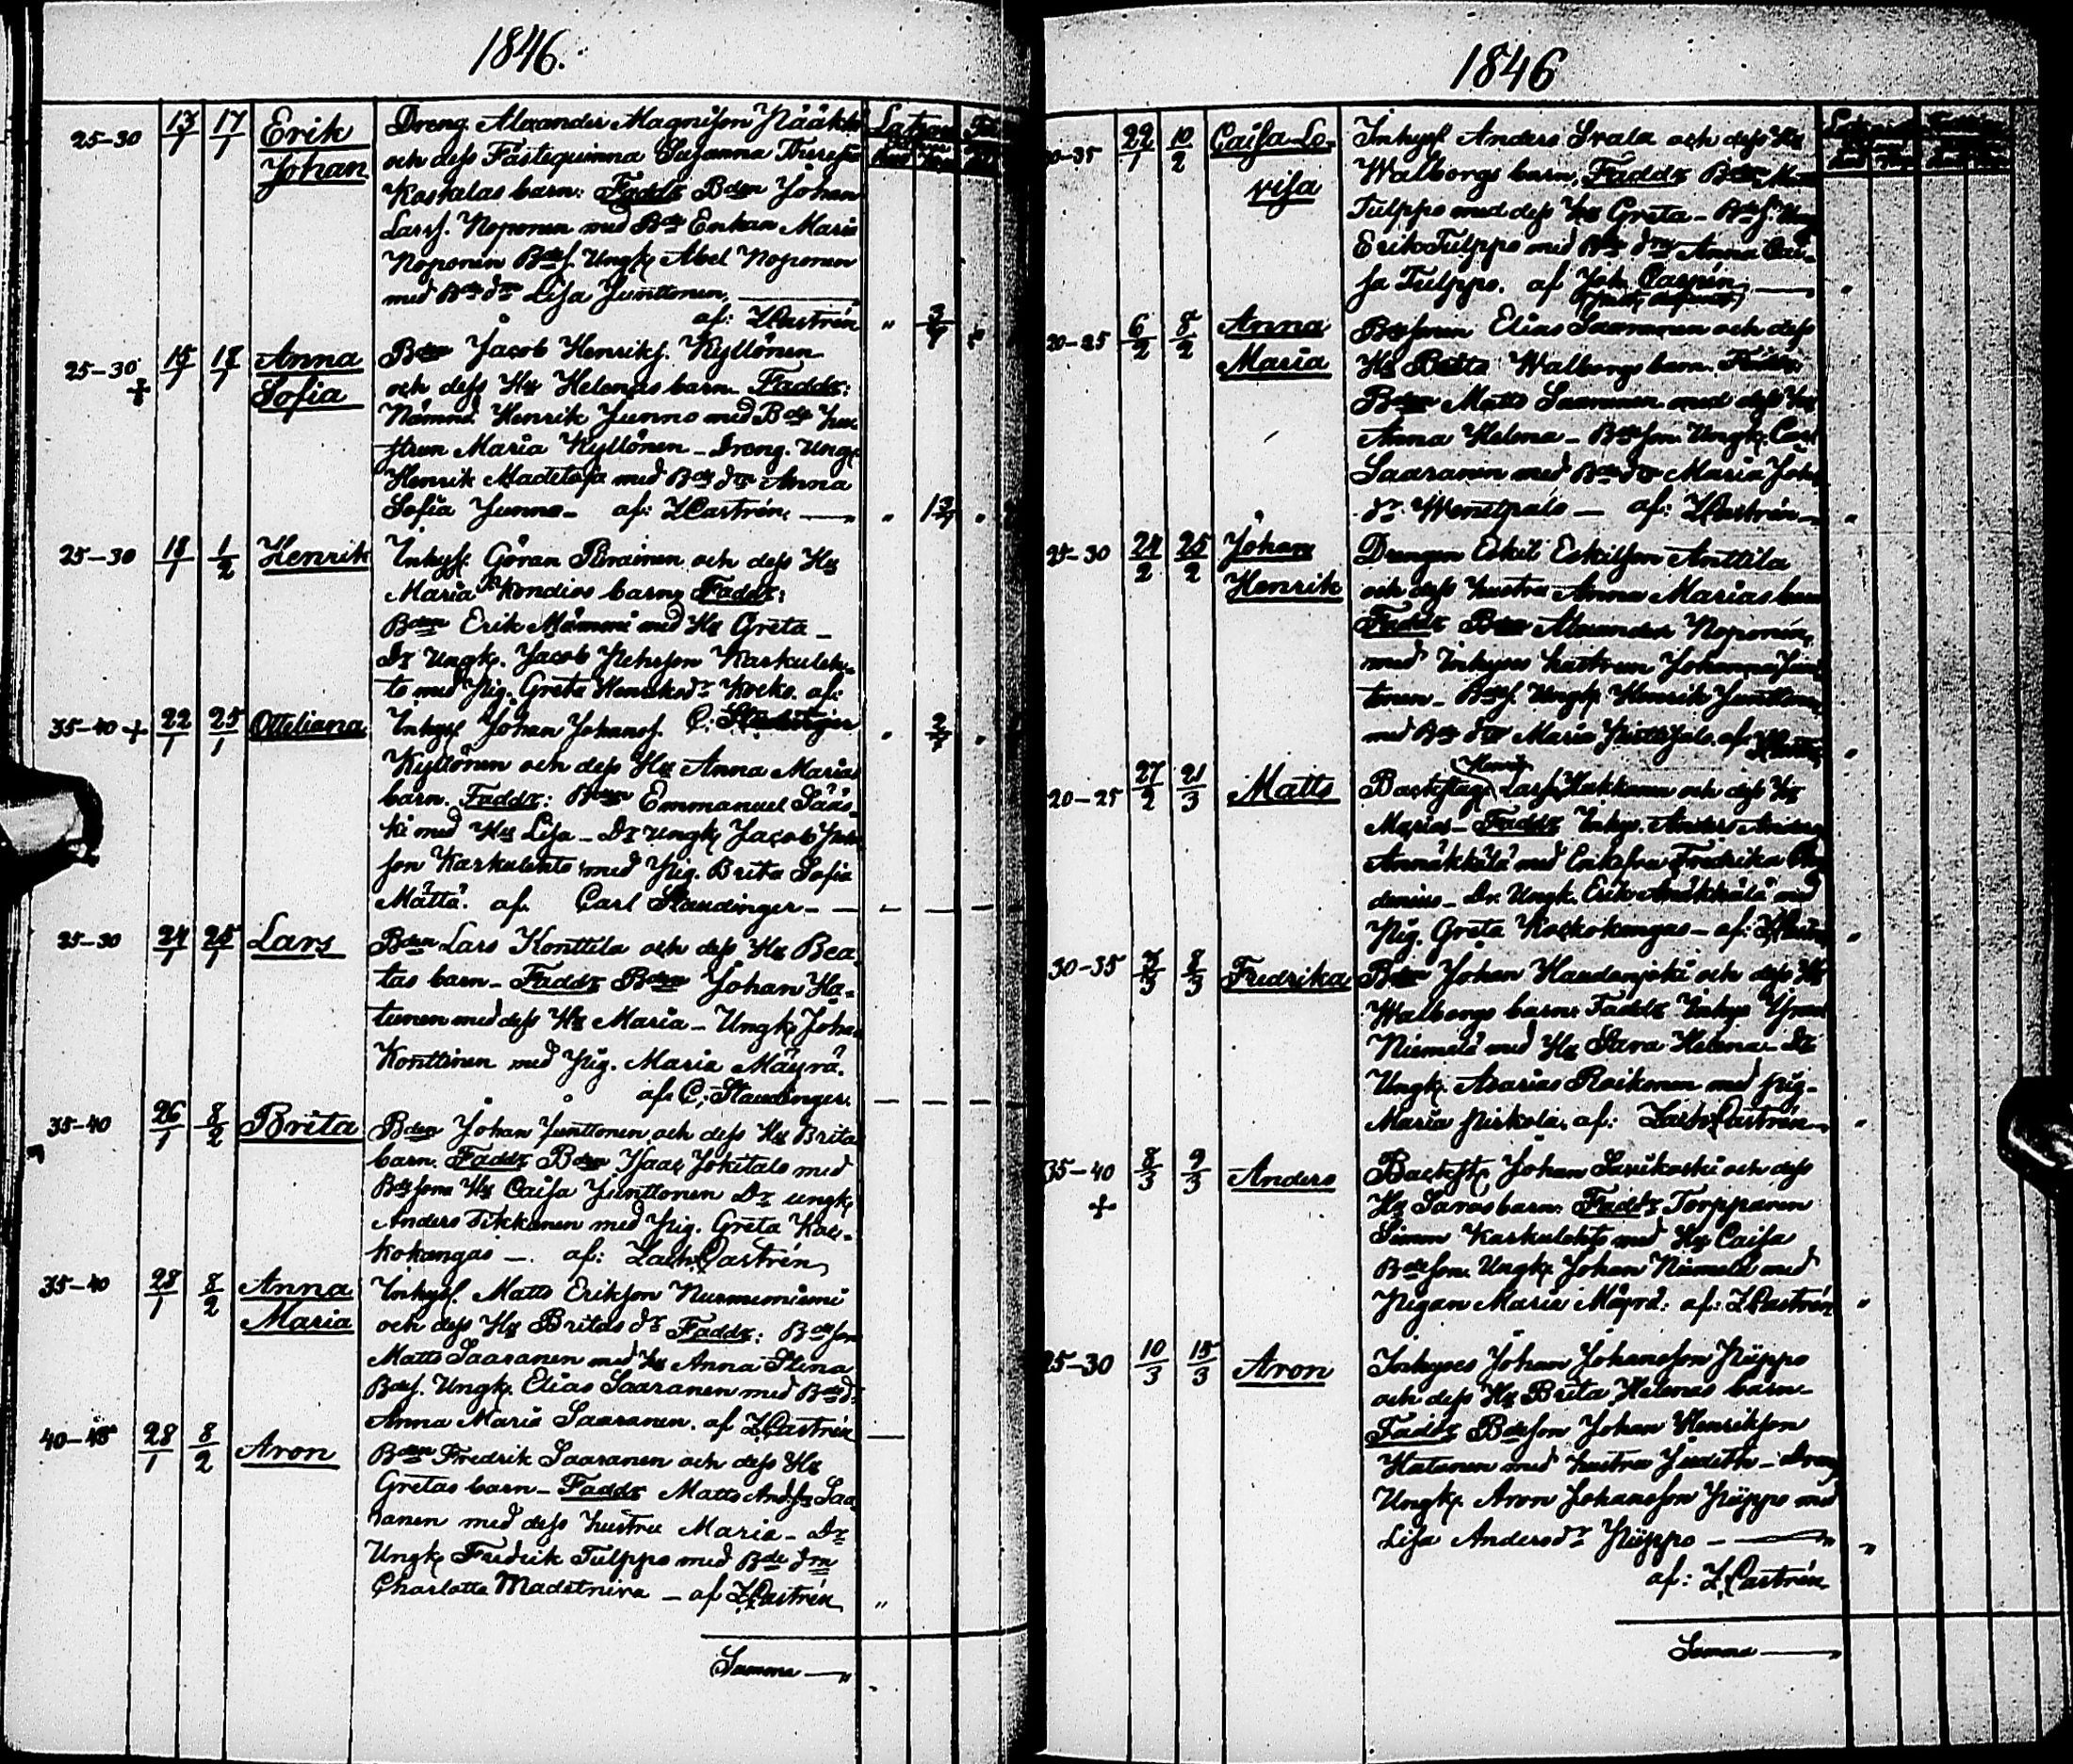 1846.
25-30 13/1 17/1 Erik Dreng Alexander Magnisson Pääkk
Johan och dess Fästequinna Susanna Theresia
Koskelas barn: Faddr Bden Johan
Larss. Noponen med Bde Enkan Maria
Noponen Bdes. Ungk Abel Noponen
med Bde dr Lisa Junttonen,
af: ZCastrén
25-30 + 15/1 18/1 Anna Bden Jacob Henriks. Kyllönen
Sofia och dess Hu Helenas barn Faddr:
Nämnd. Henrik Junno med Bde hu-
strun Maria Kyllönen - Dreng. Ungk
Henrik Madetoja med Bde dr Anna
Sofia Junno - af: ZCastrén,
25-30 18/1 1/2 Henrik Inhys. Göran och dess Hu
Maria Kondios barn Faddr:
Bden Erik Mämmi med Hu Greta -
Dr Ungk. Jacob Pehrsson Karkuleh-
to med Pig. Greta Henriksdr Kocko. af:
C: Staudinger
35-40 + 22/1 25/1 Otteliana Inhys Johan Johans.
Kyllönen och dess Hu Anna Marias
barn. Faddr: Bden Emmanuel Sääs-
ki med Hu Lisa - Dr Ungk Jacob Pehr
son Karkulehto med Pig. Brita Sofia
Mättä. af. Carl Staudinger -
25-30 24/1 25/1 Lars Bden Lars Konttila och dess Hu Bea
tas barn - Faddr Bden Johan Hä-
tünen med dess Hu Maria - Ungk Johan
Konttinen med Pig. Maria Mäyrä.
af: C: Staudinger.
35-40 26/1 8/2 Brita Bden Johan Junttonen och dess Hu Brita
barn. Faddr Bden Isaac Jokitalo med
Bdesons Hu Caisa Junttonen Dr ungk
Anders Tikkanen med Pig. Greta Kac-
kokangas - af: Zach. Castrén
35-40 28/1 8/2 Anna Inhys. Matts Erikson Nurmeniemi
Maria och dess Hu Britas dr Faddr: Bdeson
Matts Saaranen med Hu Anna Stina
Bdes. Ungk. Elias Saaranen med Bde d:
Anna Maria Saaranen. af ZCastrén
40-45 28/1 8/2 Aron Bden Fredrik Saaranen och dess Hu
Gretas barn - Faddr Matts And.sn Saa
ranen med dess hustru Maria - Dr
Ungk Fredrik Tulppo med Bde drn
Charlotta Madetnira - af ZCastrén
Summa
1846
30-35 22/1 10/2 Caisa Lo- Inhys Anders Srala och dess Hu
visa Walborgs barn, Faddr Bden
Tulppo med dess Hu Greta - Bdes. Ung
Erik Tulppo med Bde dr Anna Cai-
sa Tulppo. af Joh Castrén
20-25 6/2 8/2 Anna Bdesonen Elias Saaranen och dess
Maria Hu Beata Walborgs barn. Faddr:
Bden Matts Saaranen med dess Hu
Anna Helena - Bdeson. Ungk. Carl
Saaranen med Bde dr Maria Joh
dr - af: ZCastrén
25-30 24/2 25/2 Johan Drengen Eskil Eskilsson Anttila
Henrik och dess hustru Anna Marias barn
Faddr Bden Alexander Noponen,
med Inhyses hustrun Johanna Jun
tonen - Bdes. Ungk Henrik Junttonen
med Bde dr Maria af:
20-25 27/2 21/3 Matts Backstug. Henrik Larss. Hakkanen och dess Hu
Marias - Faddr Inhys. Anders Anders
Ammäkkälä med Enkefru Fredrika
denius - Dr. Ungk. Erik Ämäkkälä med
Pig. Greta Kackokangas - af: ZCastrén
30-35 5/3 8/3 Fredrika Bden Johan Haudanjoki och dess Hu
Walborgs barn: Faddr Inhys
Niemelä med Hu Sara Helena - Dr
Ungk. Asarias Roikonen med Pig-
Maria Pirkola, af: Zach. Castrén
35-40 + 8/3 9/3 Anders Backst. Johan Sarikoski och dess
Hu Saras barn. Faddr Torpparen
Simon Karkulehto med Hu Caisa
Bdeson. Ungk. Johan Niemelä med
Pigan Maria Mäyrä. af: ZCastrén
25-30 10/3 15/3 Aron Inhyses Johan Johansson Piippo
och dess Hu Brita Helenas barn-
Faddr Bdeson Johan Henrikson
Hatanen med hustru Judith - Dreng
Ungk. Aron Johansson Piippo med
Lisa Andersdr Piippo -
af: Z.Castrén
Summa